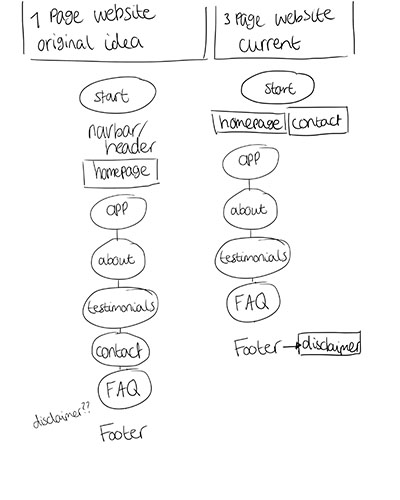 1 Page website
original idea
start
navbar/
header
homepage
app
about
testimonials
contact
FAQ
disclaimer??
Footer
3 Page website
current
Start
homepage contact
app
about
testimonials
FAQ
Footer → disclaimer